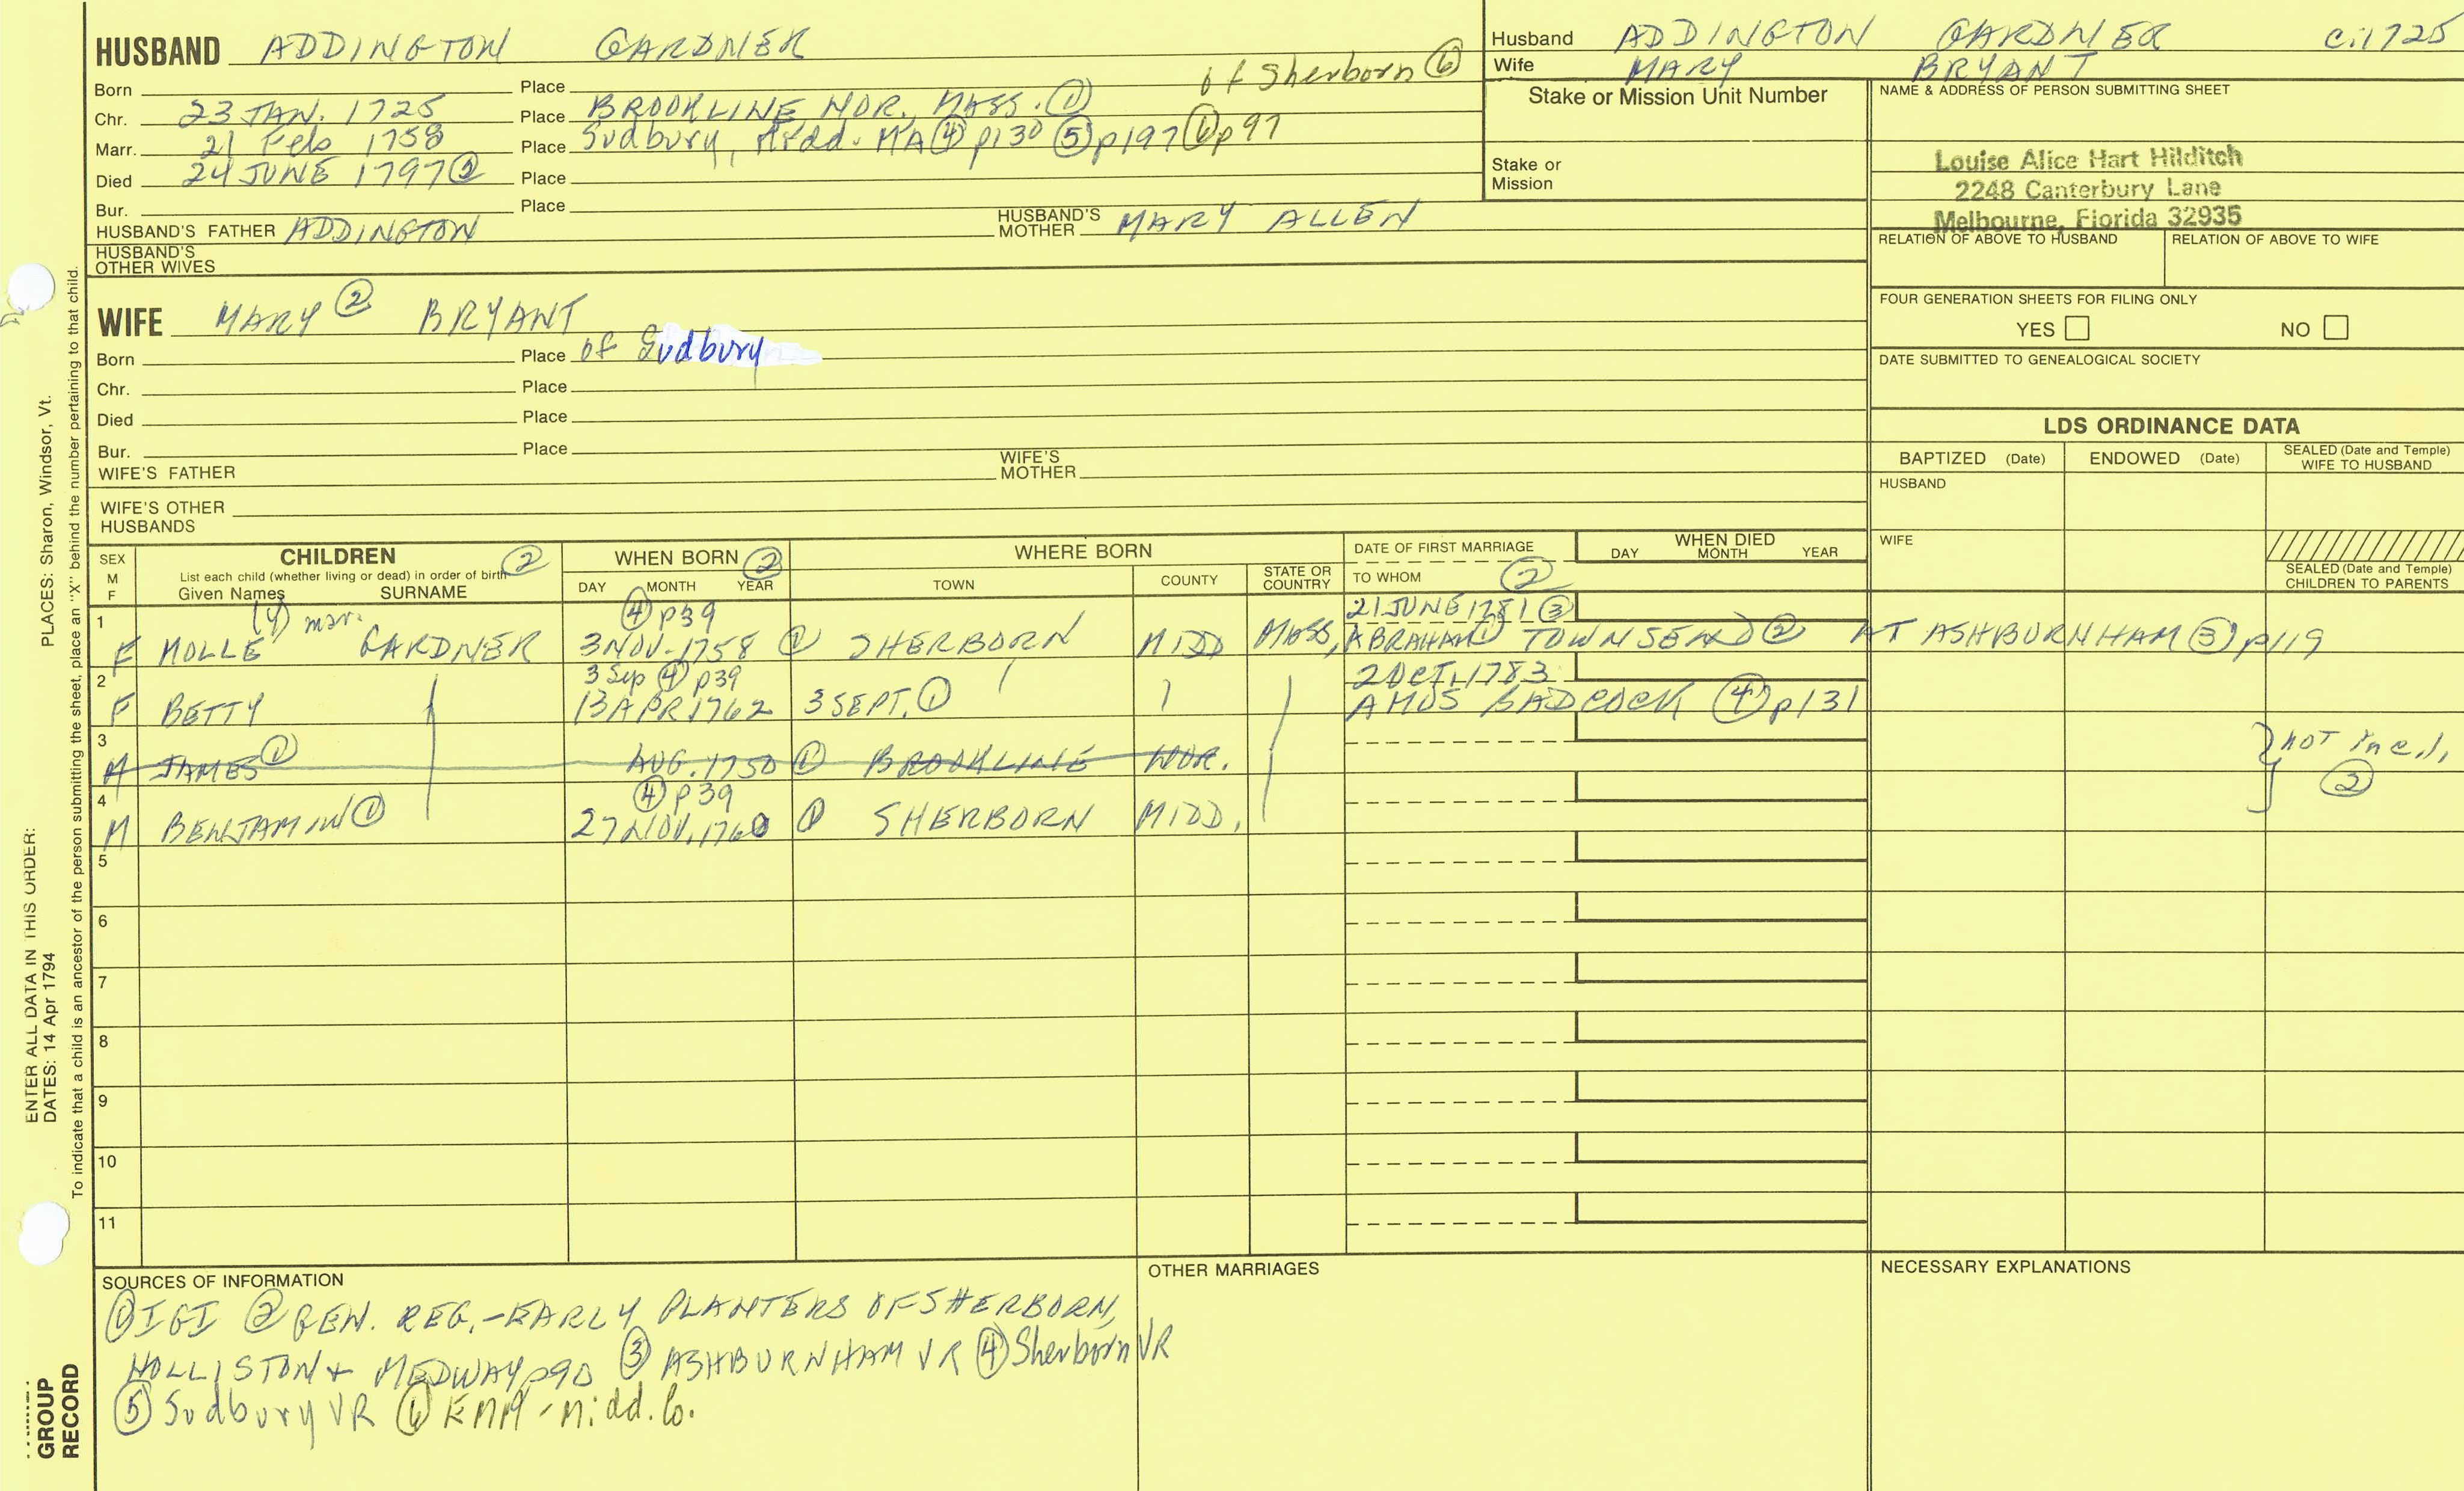 HUSBAND ADDINGTON GARDNER
Born Place of Sherborn ⑥
Chr. 23 JAN. 1725 Place BROOKLINE, NOR., MASS. ①
Marr. 21 Feb 1758 Place Sudbury, Midd. MA ④ p130 ⑤ p197 ⑥ p97
Died 24 JUNE 1797 ② Place
Bur. Place
HUSBAND'S FATHER ADDINGTON HUSBAND'S MOTHER MARY ALLEN
HUSBAND'S OTHER WIVES
Husband ADDINGTON GARDNER C.1725
Wife MARY BRYANT
Stake or Mission Unit Number
Stake or Mission
NAME & ADDRESS OF PERSON SUBMITTING SHEET
Louise Alice Hart Hilditch
2248 Canterbury Lane
Melbourne, Florida 32935
RELATION OF ABOVE TO HUSBAND RELATION OF ABOVE TO WIFE
FOUR GENERATION SHEETS FOR FILING ONLY
YES NO
DATE SUBMITTED TO GENEALOGICAL SOCIETY
WIFE MARY ② BRYANT
Born Place of Sudbury
Chr. Place
Died Place
Bur. Place
WIFE'S FATHER WIFE'S MOTHER
WIFE'S OTHER HUSBANDS
LDS ORDINANCE DATA
BAPTIZED (Date) ENDOWED (Date) SEALED (Date and Temple) WIFE TO HUSBAND
HUSBAND
WIFE
SEALED (Date and Temple) CHILDREN TO PARENTS
SEX M F
CHILDREN ②
List each child (whether living or dead) in order of birth
Given Names SURNAME
WHEN BORN ②
DAY MONTH YEAR
WHERE BORN
TOWN COUNTY STATE OR COUNTRY
DATE OF FIRST MARRIAGE
TO WHOM ②
WHEN DIED
DAY MONTH YEAR
1 (y) mar. ④ p39 21 JUNE 1781 ③
F MOLLE GARDNER 3 NOV. 1758 ① SHERBORN MIDD MASS, ABRAHAM TOWNSEND ② AT ASHBURNHAM ③ p119
2 3 Sep ④ p39 2 OCT. 1783
F BETTY 13 APR 1762 3 SEPT. ① AMOS BADCOCK ④ p131
3
M JAMES ① AUG. 1750 ① BROOKLINE NOR.
4 ④ p39
M BENJAMIN ① 27 NOV. 1760 ① SHERBORN MIDD.
} not incl. ②
5
6
7
8
9
10
11
SOURCES OF INFORMATION
① IGI ② GEN. REG. - EARLY PLANTERS OF SHERBORN,
HOLLISTON + MEDWAY p90 ③ ASHBURNHAM VR ④ Sherborn VR
⑤ Sudbury VR ⑥ EMM - Midd. Co.
OTHER MARRIAGES
NECESSARY EXPLANATIONS
ENTER ALL DATA IN THIS ORDER:
DATES: 14 Apr 1794
PLACES: Sharon, Windsor, Vt.
To indicate that a child is an ancestor of the person submitting the sheet, place an "X" behind the number pertaining to that child.
GROUP
RECORD